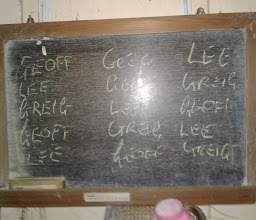 GEOFF GREG LEE
LEE GEOFF GREIG
GREIG LEE GEOFF
GEOFF GREIG LEE
LEE GEOFF GREIG